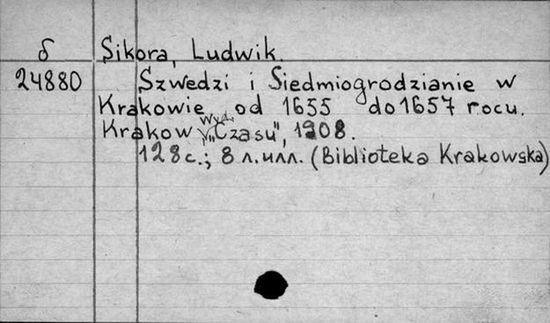 δ Sikora, Ludwik.
24880 Szwedzi i Siedmiogrodzianie w
Krakowie od 1655 do 1657 rocu.
Krakow Wyd. "Czasu", 1908.
128 с.; 8 л. илл. (Biblioteka Krakowska)